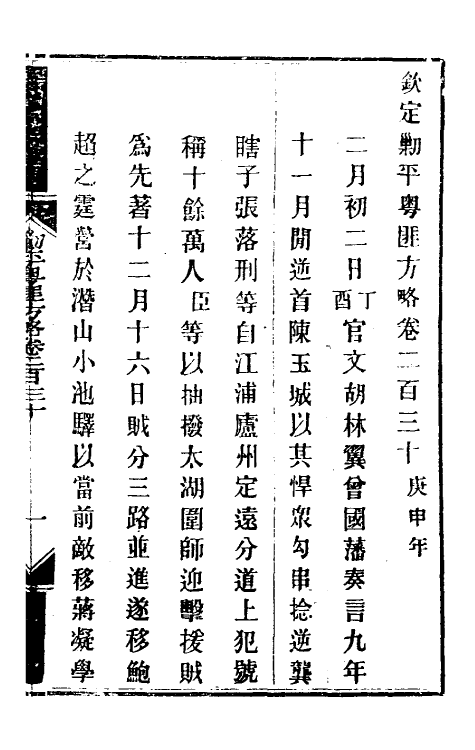 欽定剿平粤匪方略卷二百三十 庚申年
二月初二日丁酉官文胡林翼曾國藩奏言九年
十一月間逆首陳玉城以其悍衆勾串捻逆龔
瞎子張落刑等自江浦廬州定遠分道上犯號
稱十餘萬人臣等以抽撥太湖圍師迎擊援賊
爲先著十二月十六日賊分三路並進遂移鮑
超之霆營於潛山小池驛以當前敵移蔣凝學
剿平粤匪方略卷二百三十
一